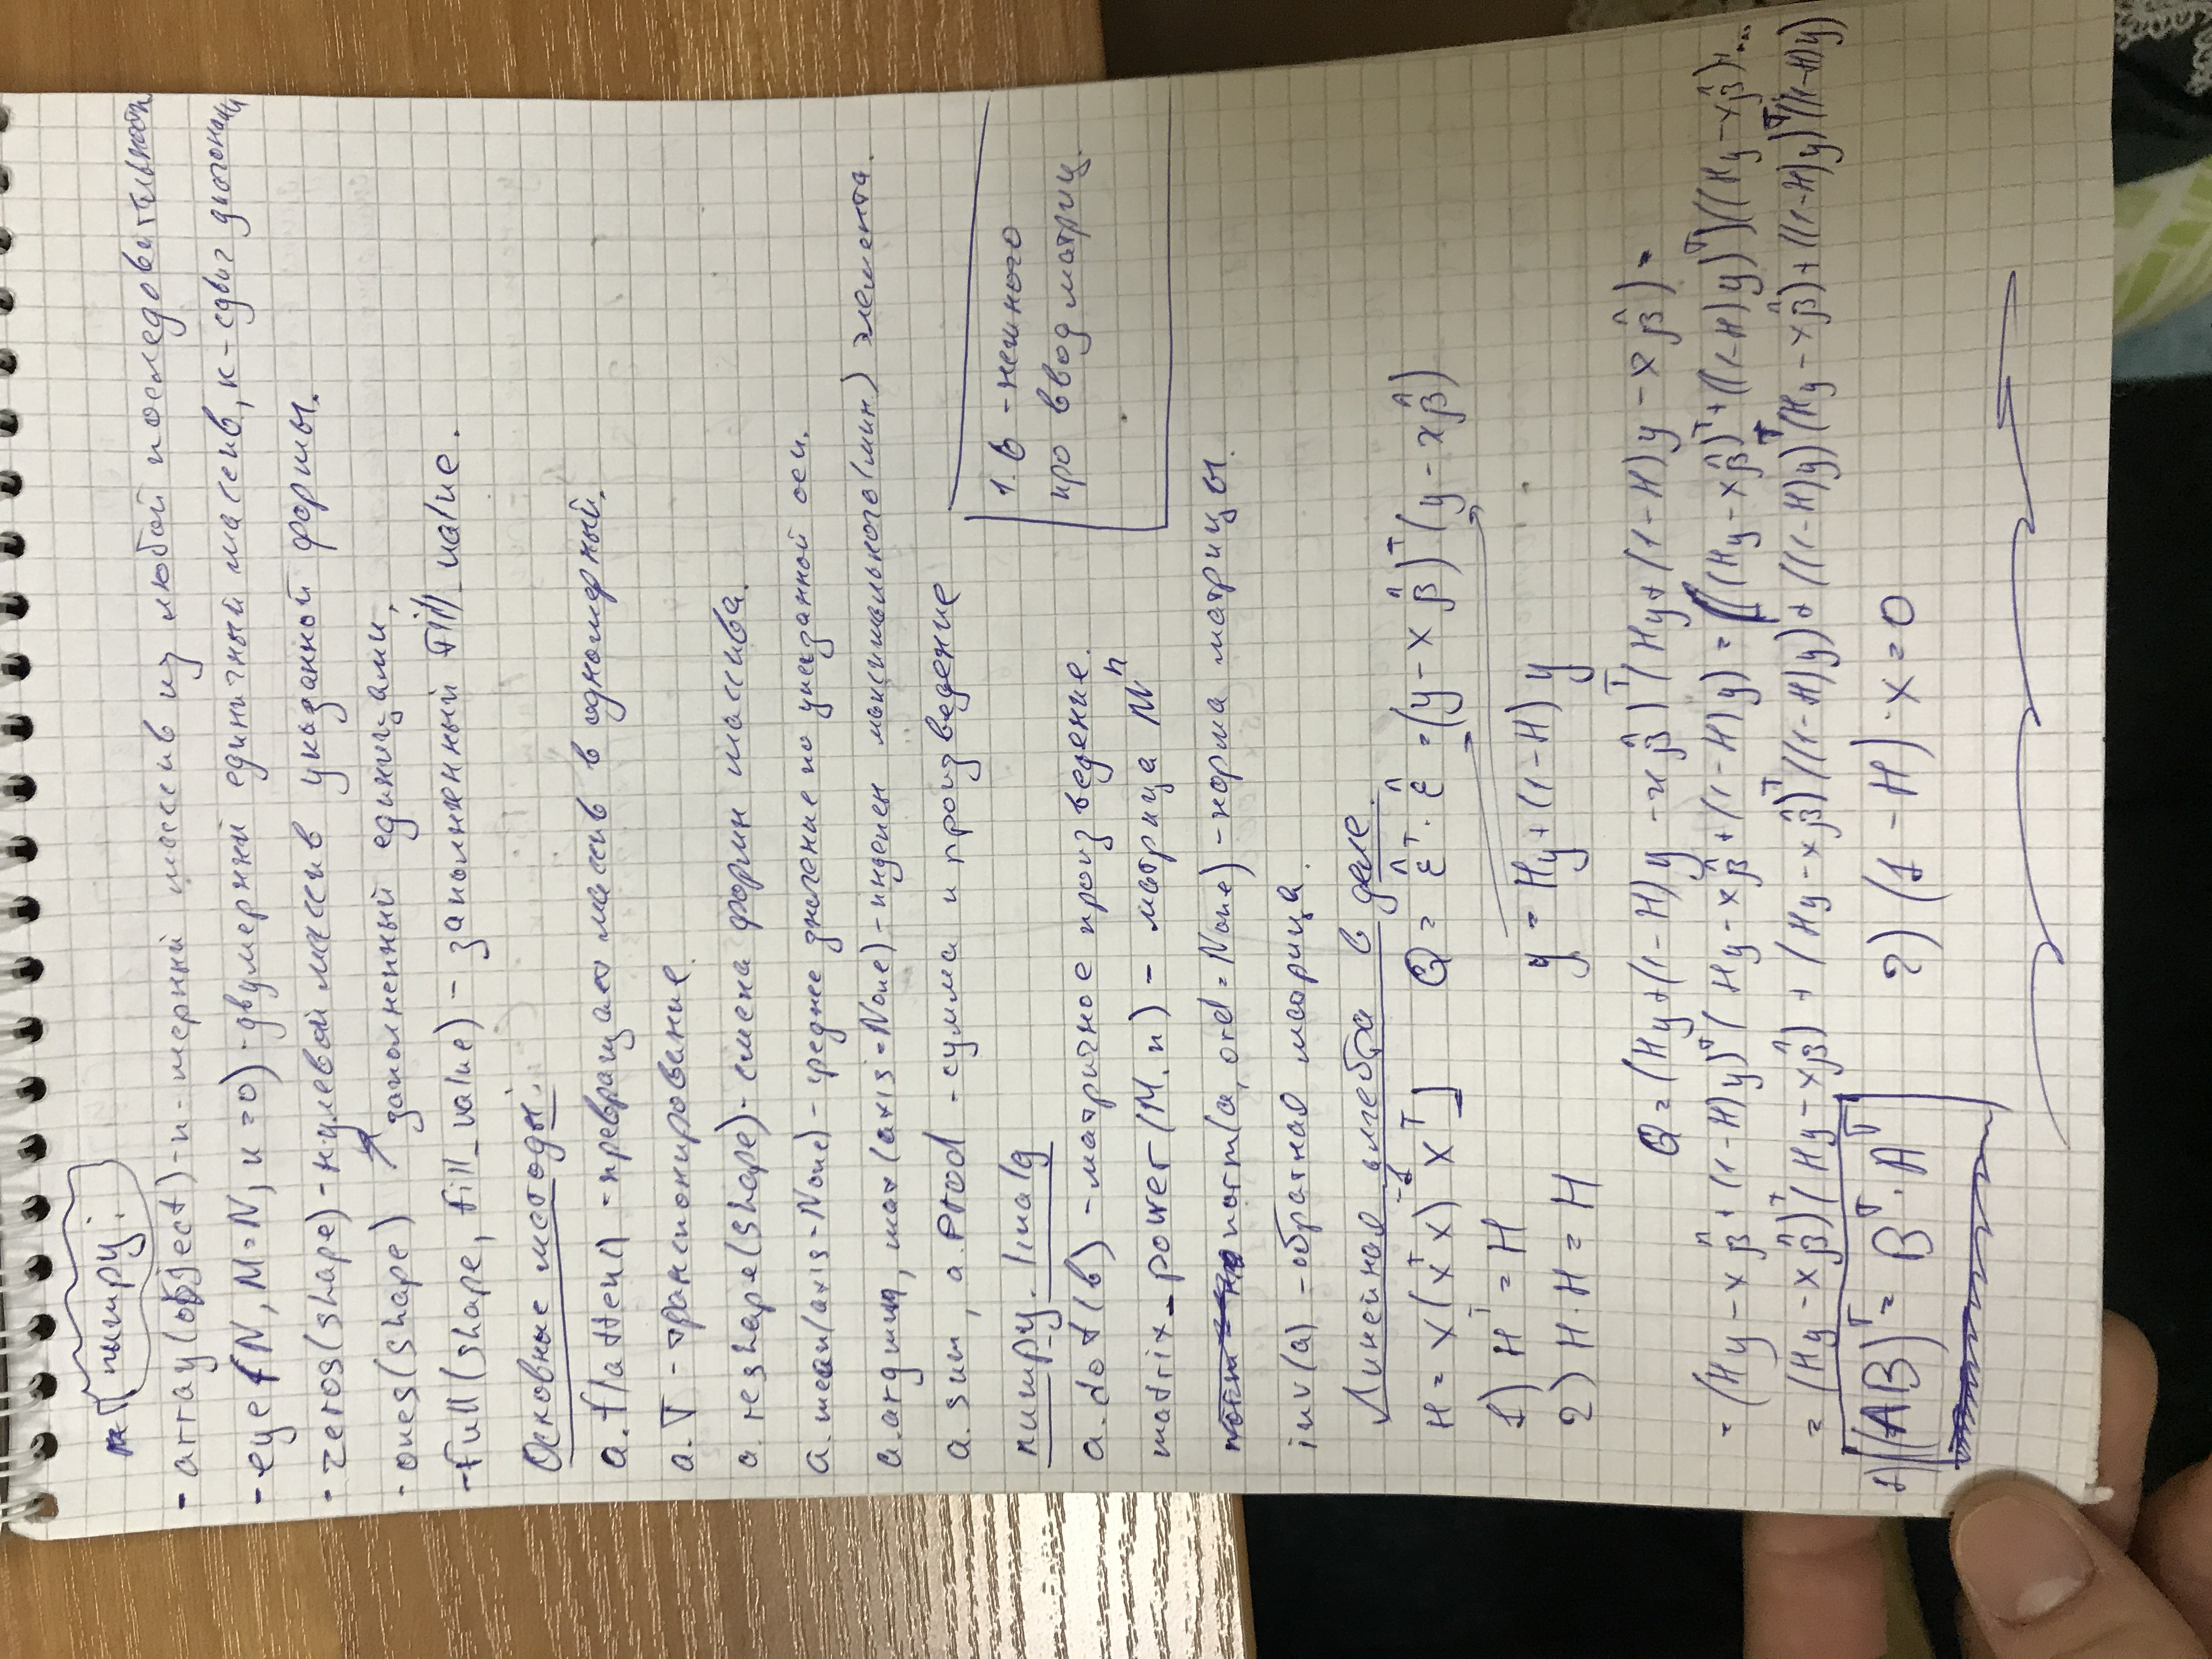 numpy:
- array(object) - n-мерный массив из любой последовательности
- eye(N, M=N, k=0) - двумерный единичный массив, k - сдвиг диагонали
- zeros(shape) - нулевой массив указанной формы.
- ones(shape) ↗ заполненный единицами.
- full(shape, fill_value) - заполненный fill_value.
Основные методы:
a.flatten() - превращает массив в одномерный.
a.T - транспонирование.
a.reshape(shape) - смена формы массива.
a.mean(axis=None) - среднее значение по указанной оси.
a.argmin, max(axis=None) - индексы максимального (мин.) элемента.
a.sum, a.prod - сумма и произведение
1.6 - немного
про ввод матриц.
numpy.linalg
a.dot(b) - матричное произведение.
matrix_power(M, n) - матрица Mⁿ
norm(a, ord=None) - норма матрицы.
inv(a) - обратная матрица.
Линейная алгебра в деле.
H = X(XᵀX)⁻¹Xᵀ] Q = ε̂ᵀ·ε̂ = (y - xβ̂)ᵀ(y - xβ̂)
1) Hᵀ = H
y = Hy + (1-H)y
2) H·H = H
Q = (Hy + (1-H)y - xβ̂)ᵀ(Hy + (1-H)y - xβ̂) =
= (Hy - xβ̂ + (1-H)y)ᵀ(Hy - xβ̂ + (1-H)y) = ((Hy - xβ̂)ᵀ + ((1-H)y)ᵀ)((Hy - xβ̂)+...
= (Hy - xβ̂)ᵀ(Hy - xβ̂) + (Hy - xβ̂)ᵀ((1-H)y) + ((1-H)y)ᵀ(Hy - xβ̂) + ((1-H)y)ᵀ((1-H)y)
1) (AB)ᵀ = Bᵀ·Aᵀ 2) (1-H)·x = 0